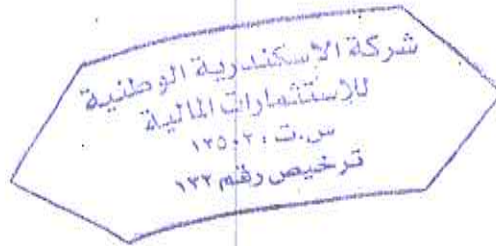 شركة الإسكندرية الوطنية
للاستثمارات المالية
س.ت: ١٢٥٠٢
ترخيص رقم ١٣٢